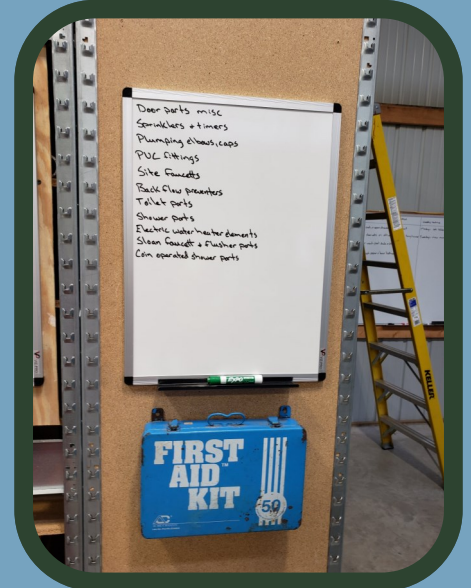 Door parts misc
Sprinklers + timers
Plumping elbows, caps
PVC fittings
Site faucetts
Back flow preventers
Toilet parts
Shower parts
Electric water heater elements
Sloan faucett + flusher parts
Coin operated shower parts
EXPO
FIRST
AID
KIT
50
KELLER